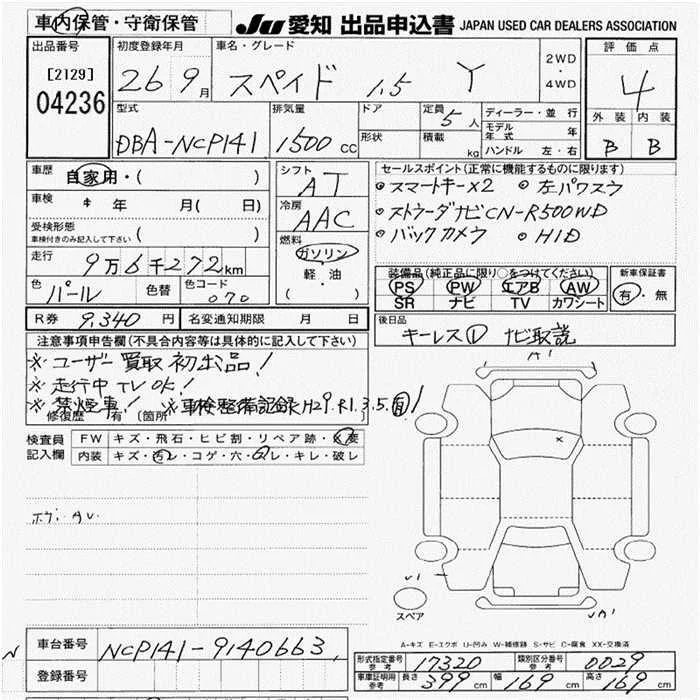 車内保管・守衛保管
JU 愛知 出品申込書 JAPAN USED CAR DEALERS ASSOCIATION
出品番号 初度登録年月 車名・グレード 2WD・4WD 評価点
[2129] 04236
26 9月 スペイド 1.5 Y 4
型式 排気量 ドア 定員 5人 ディーラー・並行 外装 内装
DBA-NCP141 1500 CC 形状 積載 kg モデル年式 年 B B
ハンドル 左・右
車歴 自家用・( )
シフト AT
セールスポイント(正常に機能するものに限ります)
車検 年 月( 日)
冷房 AAC
・スマートキー×2 ・左パワスラ
受検形態 車検付きのみ記入して下さい ( )
・ストラーダナビCN-R500WD
走行 9万6千272km
燃料 ガソリン・軽・油 ( )
・バックカメラ ・HID
色 パール 色替 色コード 070
装備品(純正品に限り○をつけてください) 新車保証書
PS PW エアB AW 有・無
SR ナビ TV カワシート
R券 9,340円 名変通知期限 月 日
後日品
キーレス① ナビ取説
注意事項申告欄(不具合内容等は具体的に記入して下さい)
※ユーザー買取初出品!
※走行中TV OK!
※禁煙車! ※車検整備記録H29.R1.3.5.有!
修復歴 有 [箇所
A1
検査員記入欄 FW キズ・飛石・ヒビ割・リペア跡・変
内装 キズ・汚レ・コゲ・穴・レ・キレ・破レ
×
U1
スペア
A-キズ E-エクボ U-凹み W-補修跡 S-サビ C-腐食 XX-交換済
車台番号 NCP141-9140663
登録番号
形式指定番号 参考 17320 類別区分番号 参考 0029
車庫証明用 参考 長さ 399cm 幅 169cm 高さ 169cm